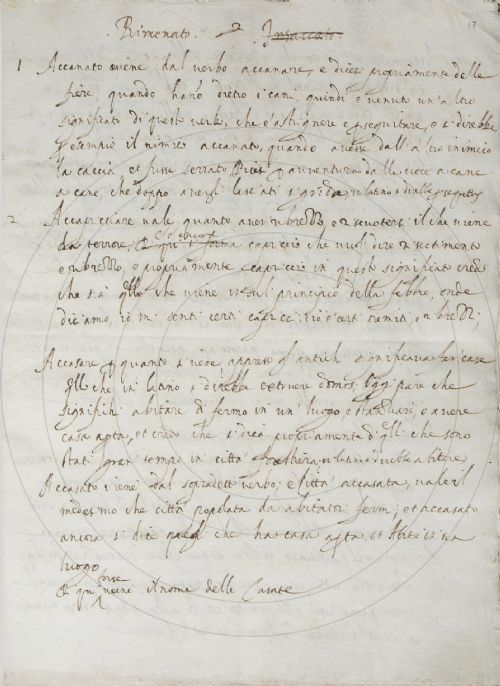 Rimenato. Insaccato.
1 Accanato viene dal verbo accanare, e dicesi propriamente delle
fiere, quando hanno dietro i cani, quindi è venuto un altro
significato di questo verbo, che è astignere e perseguitare, e si direbbe
per esempio il nimico accanato, quando avesse dall'altro inimico
la caccia, et fusse serrato
a cane, che doppo avergli lasciati si grida
2 Accapricciare vale quanto aver ribrezzo, e riscuotersi il che viene
da terrore, et qui si forma capriccio che vuol dire riscotimento
e ribrezzo, e propriamente capriccio in questo significato credo
che sia quello che viene in sul principio della febbre, onde
diciamo, io mi senti certi capricci, cioè certi tremiti, e ribrezzi,
Accasare per quanto si vede appresso gl'antichi significava far case
quello che in latino si direbbe extruere domos, oggi pare che
significhi abitare di fermo in un luogo e avere
casa apta, et credo che si dica propriamente di quelli che sono
stati gran tempo in città
Accasato viene dal sopradetto verbo, e città accasata, vale il
medesimo che città popolata da abitatori fermi, et accasato
ancora si dice quegli che ha casa apta, et in un
luogo
Et qui forse viene il nome delle Casate